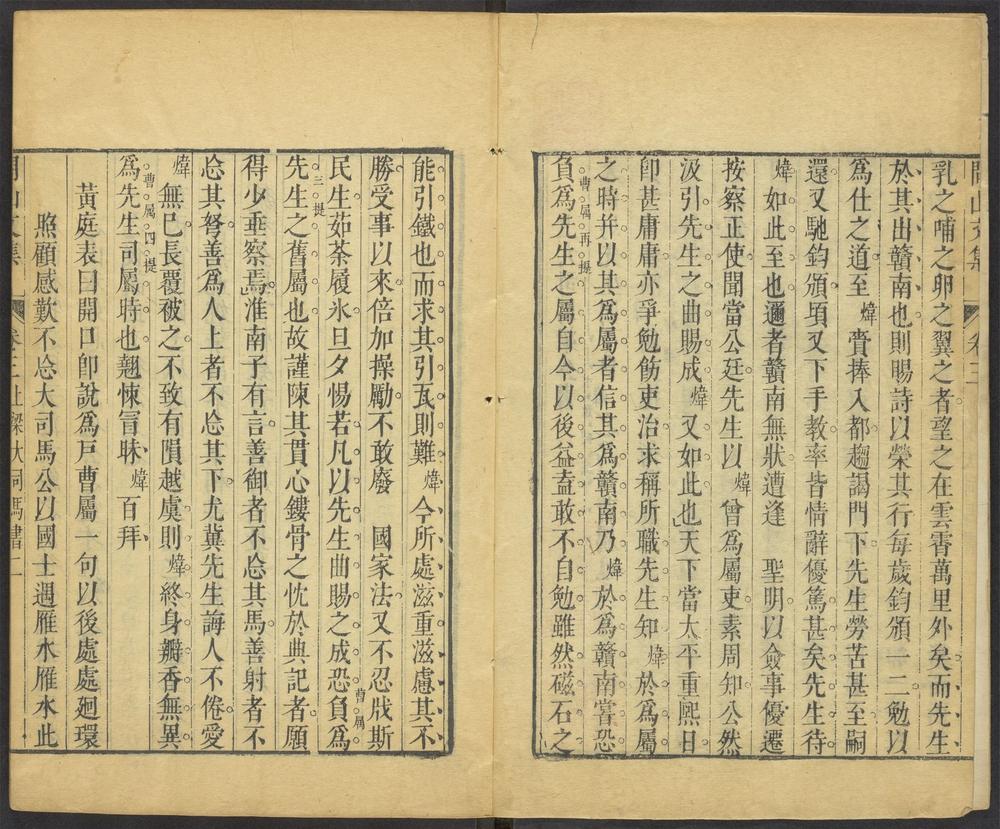 卷三
乳之哺之卵之翼之者望之在雲霄萬里外矣而先生
於其出贛南也則賜詩以榮其行每歲鈞頒一二勉以
爲仕之道至煒賫捧入都趨謁門下先生勞苦甚至嗣
還又馳鈞頒頃又下手教率皆情辭優篤甚矣先生待
煒如此至也邇者贛南無狀遭逢 聖明以僉事優遷
按察正使聞當公廷先生以煒曾爲屬吏素周知公然
汲引先生之曲賜成煒又如此也天下當太平重熙日
卽甚庸庸亦爭勉飭吏治求稱所職先生知煒於爲屬
之時并以其爲屬者信其爲贛南乃煒於爲贛南嘗恐
曹屬再提
負爲先生之屬自今以後益敢不自勉雖然磁石之
能引鐵也而求其引瓦則難煒今所處滋重滋慮其不
勝受事以來倍加操勵不敢廢 國家法又不忍戕斯
民生茹荼履氷旦夕惕若凡以先生曲賜之成恐負爲
曹屬
三提
先生之舊屬也故謹陳其貫心鏤骨之忱於典記者願
得少垂察焉淮南子有言善御者不忩其馬善射者不
忩其弩善爲人上者不忩其下尤冀先生誨人不倦愛
煒無已長覆被之不致有隕越虞則煒終身瓣香無異
曹屬四提
爲先生司屬時也翹悚冐昧煒百拜
黃庭表曰開口卽說爲戸曹屬一句以後處處廻環
照顧感歎不忩大司馬公以國士遇雁水雁水此